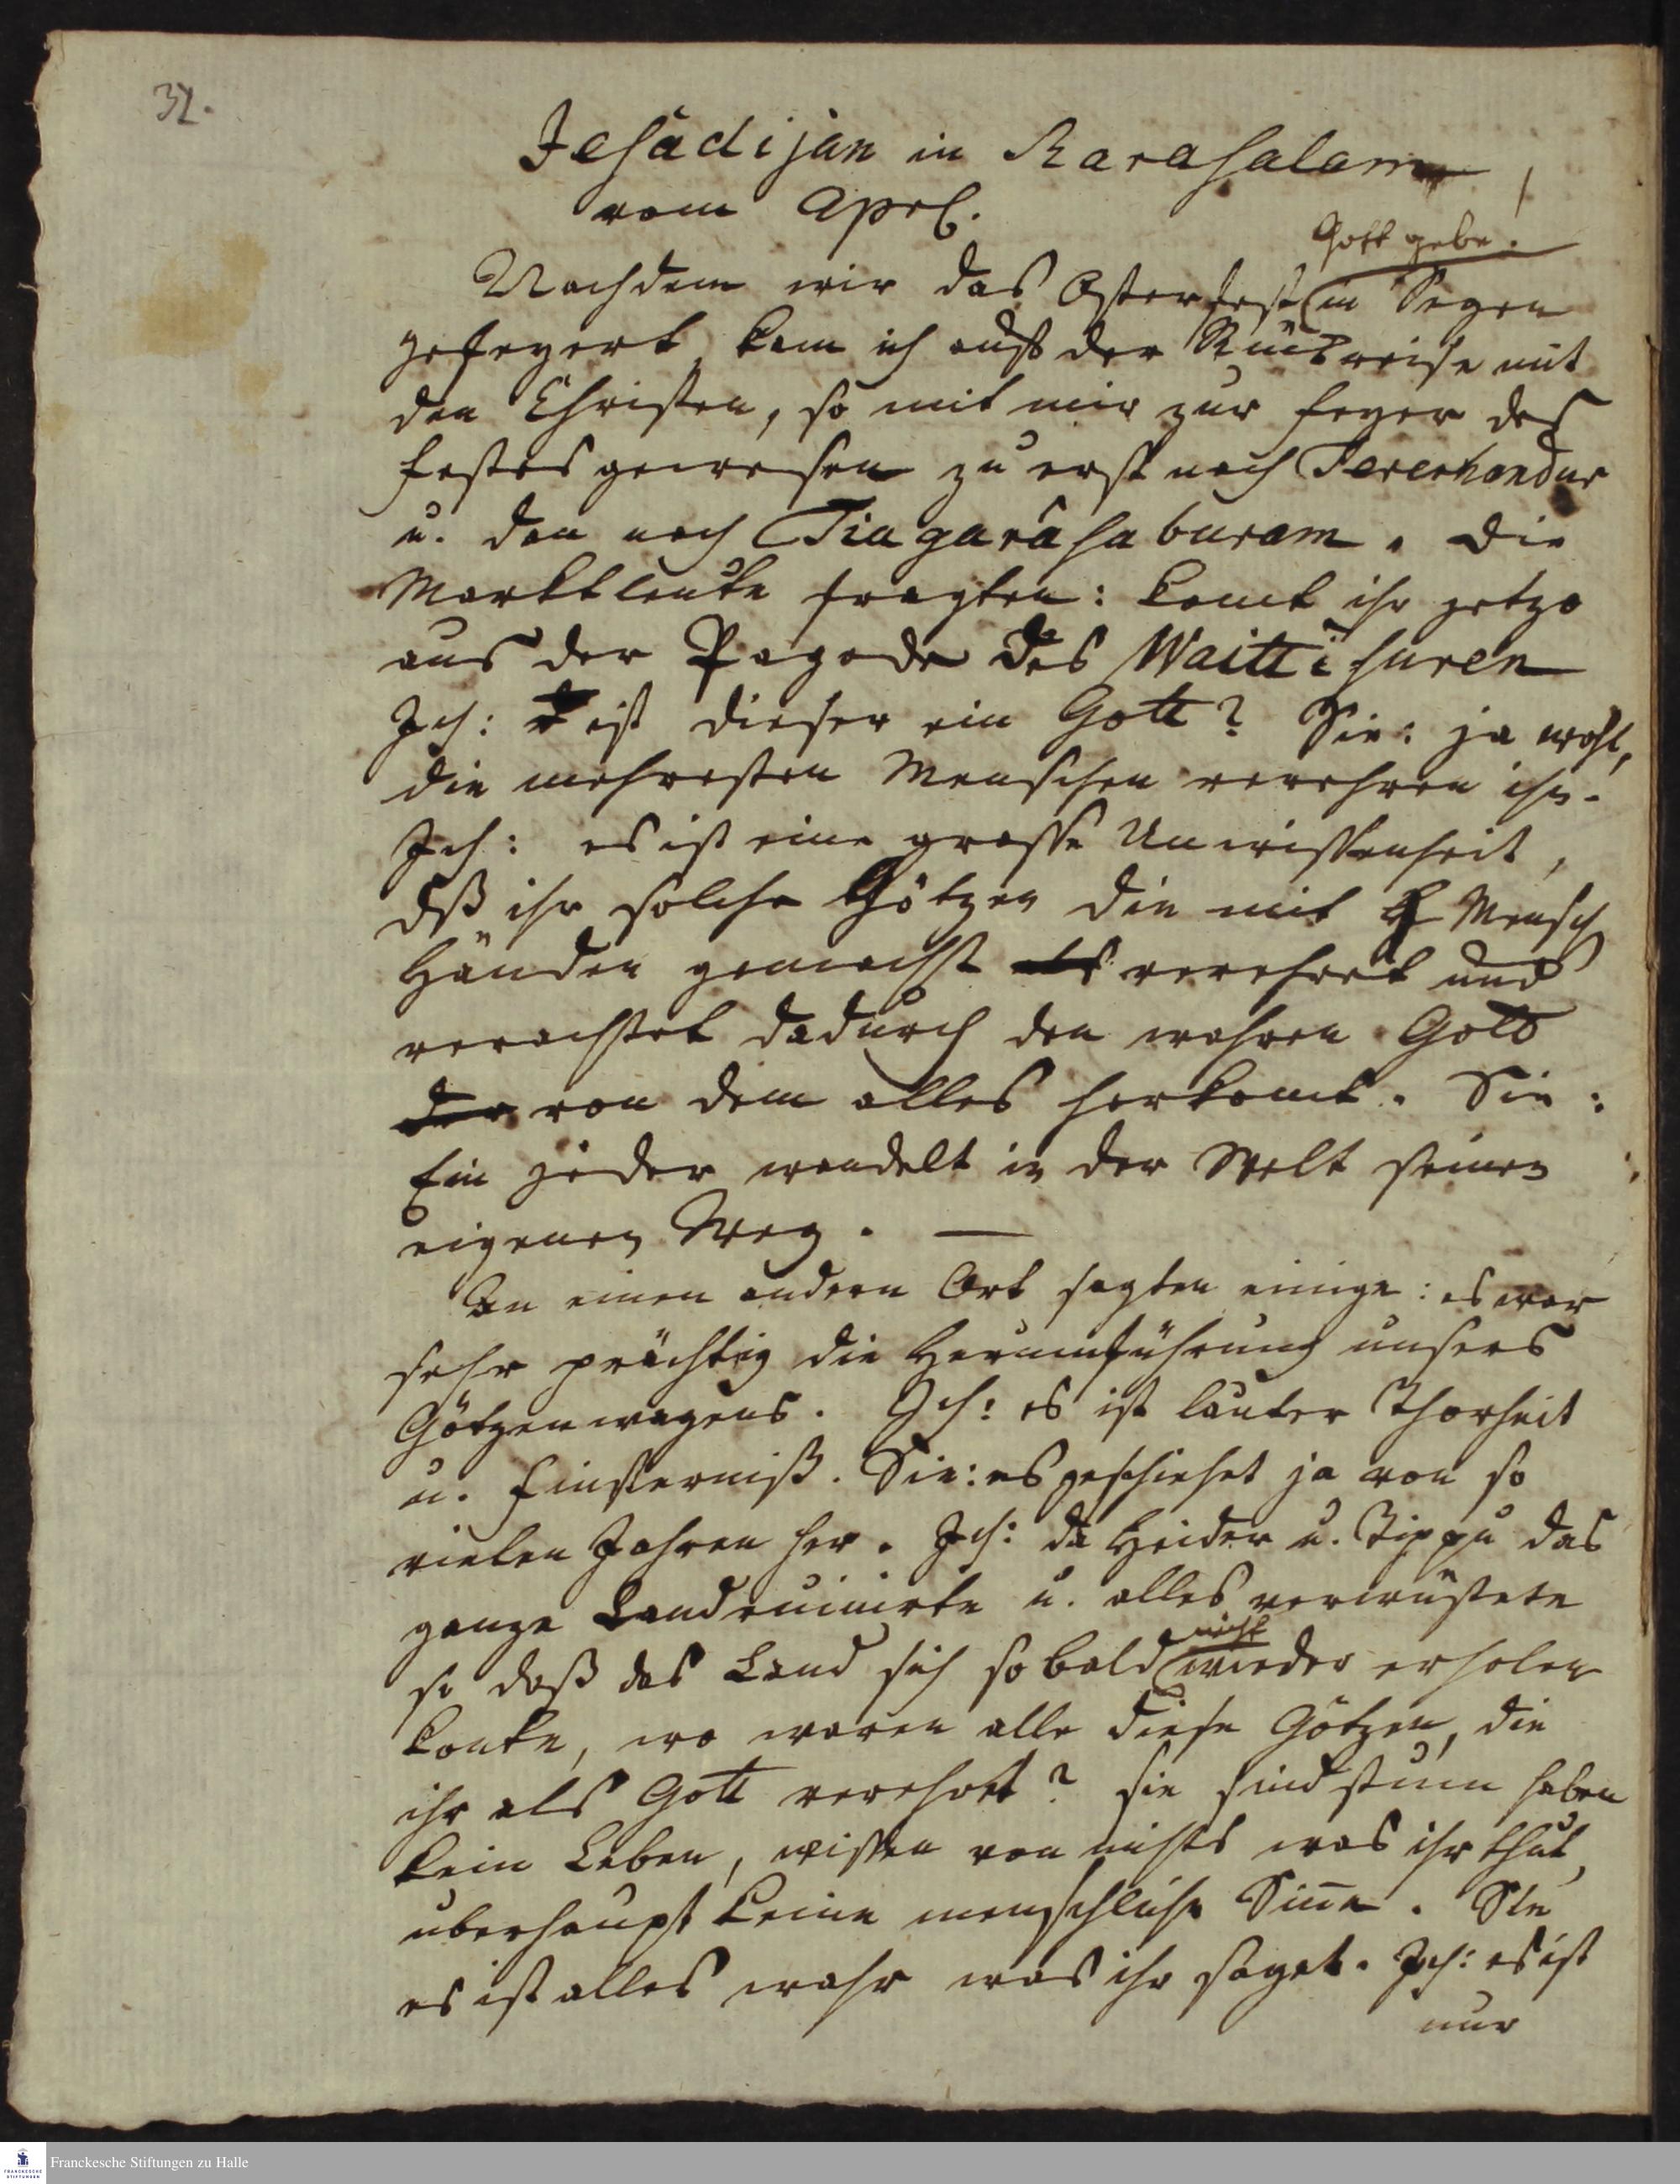 32.
Jesâdijan in Karasalam
vom Aprl.
Gott gebe!
Nachdem wir das Osterfest in Segen
gefeyert, kam ich auf der Rückreise mit
den Christen, so mit mir zur Feyer des
Festes gewesen zu erst nach
u. dan nach Tiagarâsaburam. Die
Marktleute fragten: komt ihr jetzo
aus der Pagode des Waittisuren
Ich: ist dieser ein Gott? Sie: ja wohl,
die mehresten Menschen verehren ihn.
Ich: es ist eine grosse Unwissenheit,
dß ihr solche Götzen die mit Mensch
Händen gemacht verehret und
verachtet dadurch den wahren Gott
der von dem alles herkomt. Sie:
Ein jeder wandelt in der Welt seinen
eigenen Weg. —
An einen andern Ort sagten einige: es war
sehr prächtig die Herumführung unsers
Götzenwagens. Ich: es ist lauter Thorheit
u. Finsterniß. Sie: es geschiehet ja von so
vielen Jahren her. Ich: da Heider u. Tippu das
ganze Land ruinirte u. alles verwüstete
so daß das Land sich so bald nicht wieder erholen
konte, wo waren alle diese Götzen, die
ihr als Gott verehret? sie sind stum haben
kein Leben, wissen von nichts was ihr thut,
überhaupt keine menschliche Sin̄e. Sie
es ist alles wahr was ihr saget. Ich: es ist
nur
Franckesche Stiftungen zu Halle
FRANCKESCHE STIFTUNGEN